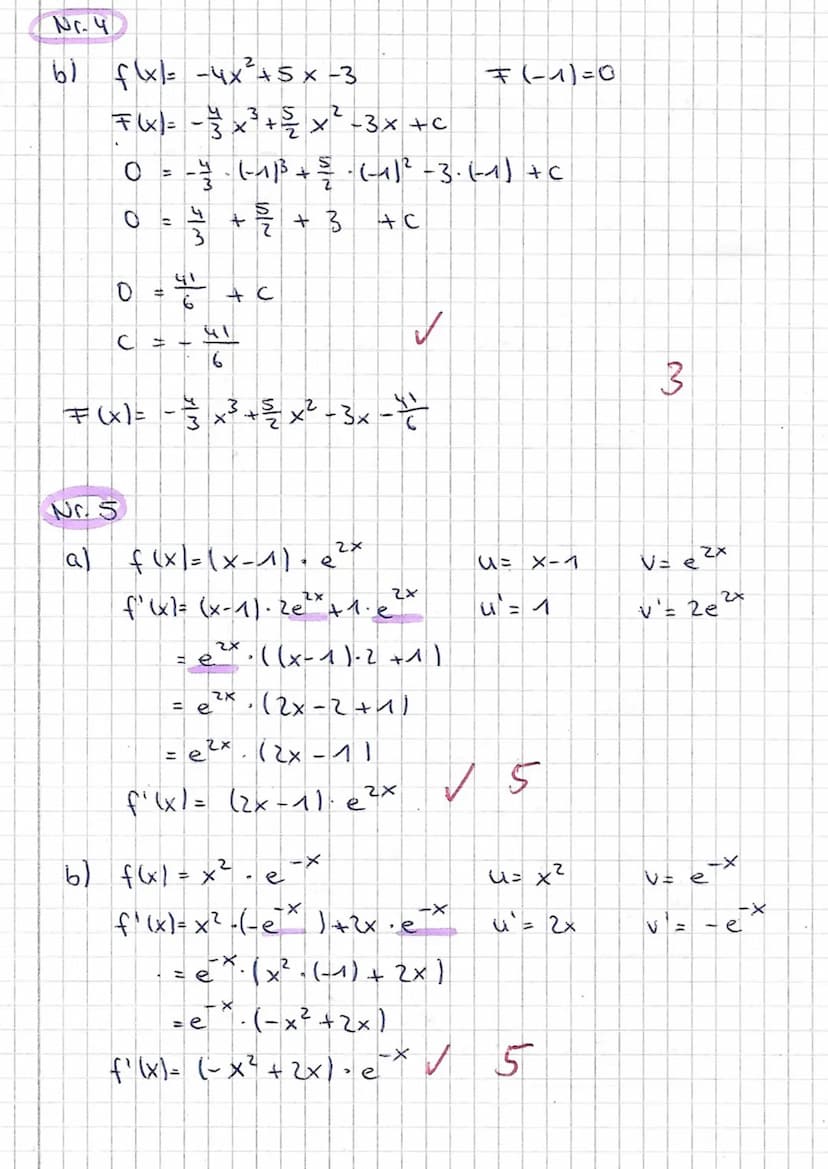 Nr. 4
b) f(x)= -4x²+5x-3 F(-1)=0
F(x)= -4/3 x³+5/2 x²-3x+c
0 = -4/3 · (-1)³+5/2 · (-1)²-3·(-1)+c
0 = 4/3 + 5/2 + 3 +c
0 = 41/6 + c
c = - 41/6 ✓
3
F(x)= -4/3 x³+5/2 x²-3x-41/6
Nr. 5
a) f(x)=(x-1)·e^(2x) u= x-1 v= e^(2x)
f'(x)= (x-1)·2e^(2x)+1·e^(2x) u'= 1 v'= 2e^(2x)
= e^(2x)·((x-1)·2+1)
= e^(2x)·(2x-2+1)
= e^(2x)·(2x-1)
f'(x)= (2x-1)·e^(2x) ✓ 5
b) f(x)= x²·e^(-x) u= x² v= e^(-x)
f'(x)= x²·(-e^(-x))+2x·e^(-x) u'= 2x v'= -e^(-x)
= e^(-x)·(x²·(-1)+2x)
= e^(-x)·(-x²+2x)
f'(x)= (-x²+2x)·e^(-x) ✓ 5